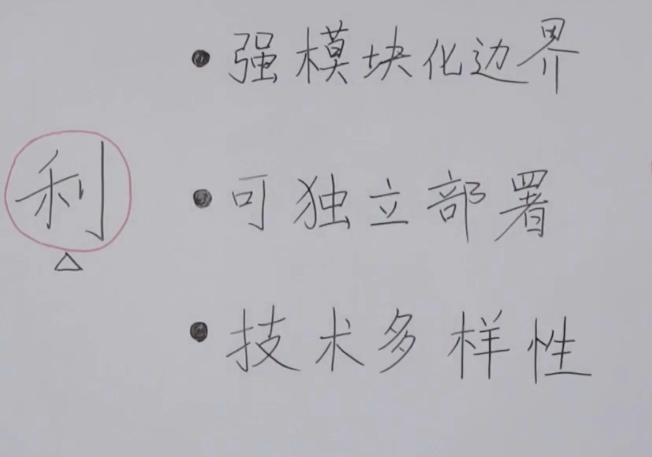 • 强模块化边界
利
• 可独立部署
• 技术多样性